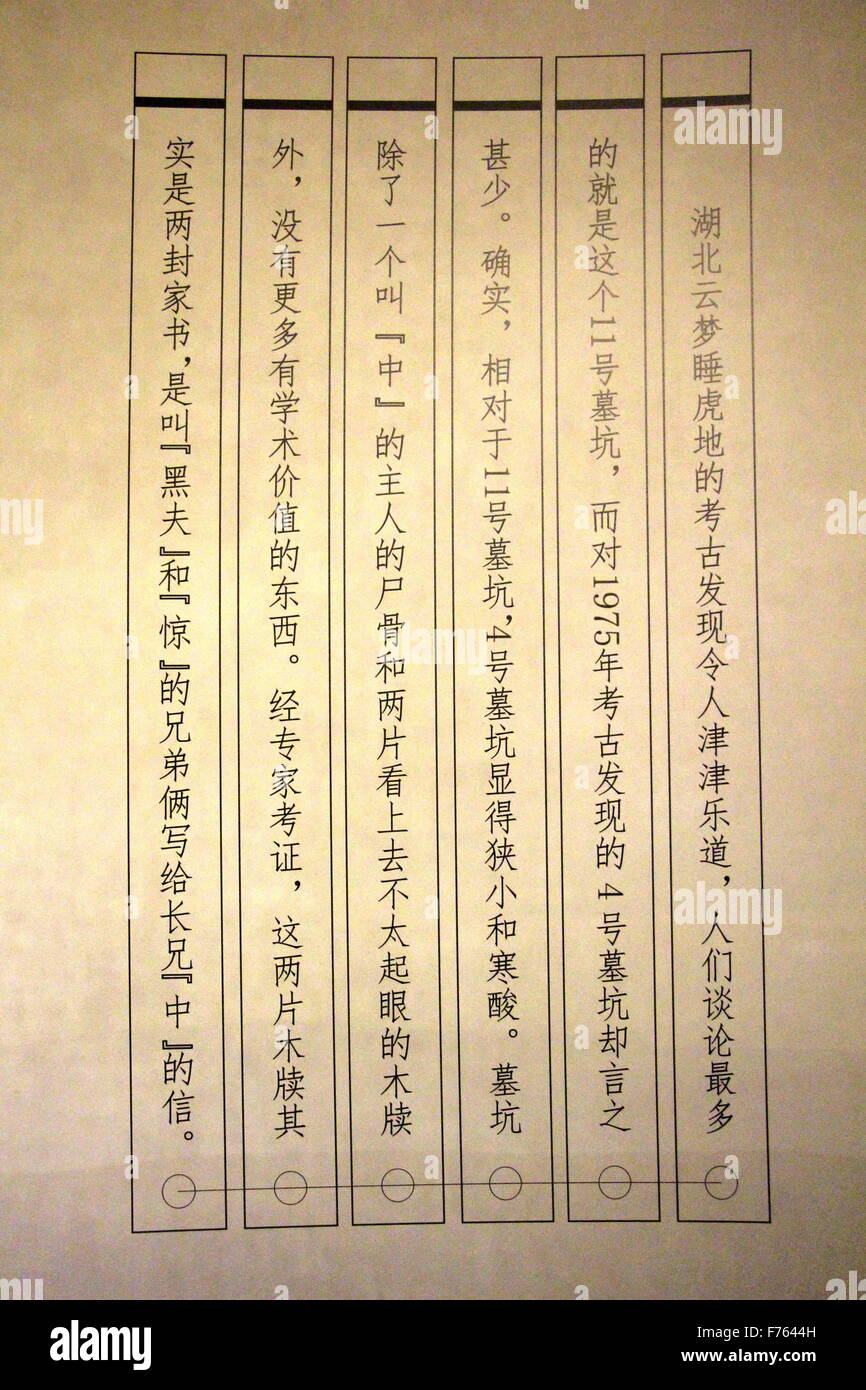 湖北云梦睡虎地的考古发现令人津津乐道，人们谈论最多
的就是这个11号墓坑，而对1975年考古发现的4号墓坑却言之
甚少。确实，相对于11号墓坑，4号墓坑显得狭小和寒酸。墓坑
除了一个叫『中』的主人的尸骨和两片看上去不太起眼的木牍
外，没有更多有学术价值的东西。经专家考证，这两片木牍其
实是两封家书，是叫『黑夫』和『惊』的兄弟俩写给长兄『中』的信。
alamy stock photo
alamy
Image ID: F7644H
www.alamy.com